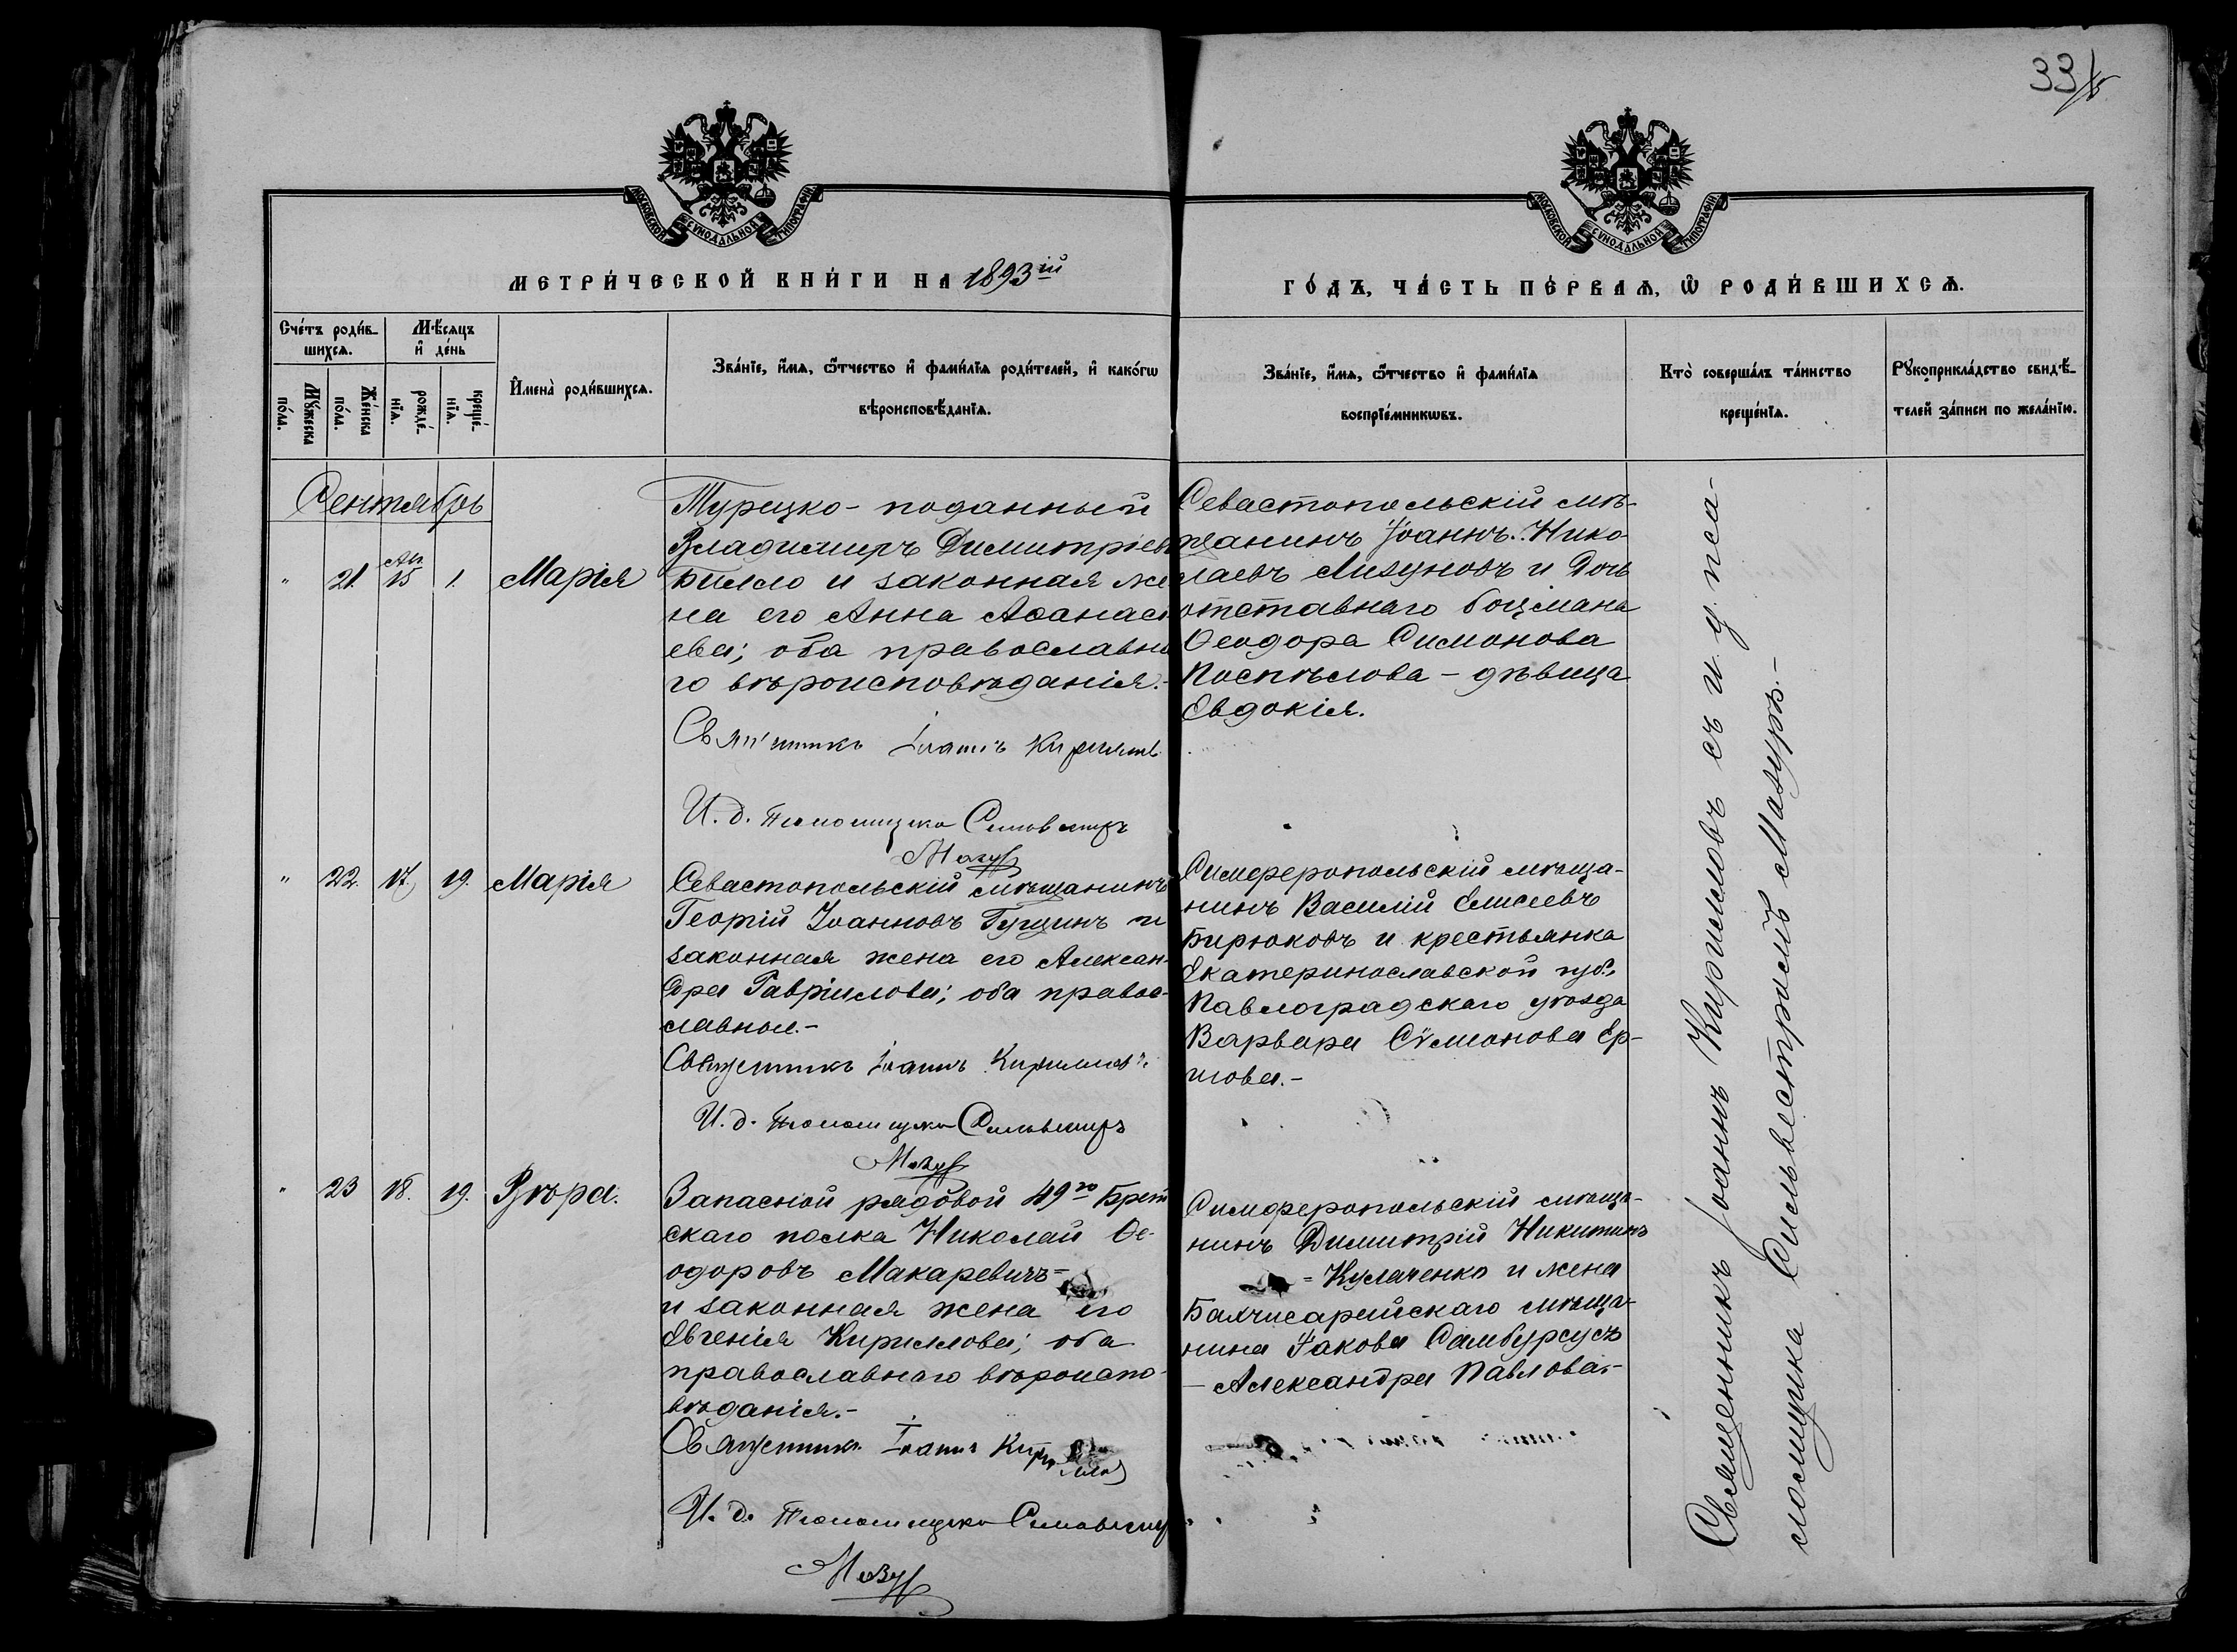 33
МОСКОВСКОЙ СѴНОДАЛЬНОЙ ТИПОГРАФІИ
МОСКОВСКОЙ СѴНОДАЛЬНОЙ ТИПОГРАФІИ
МЕТРИ́ЧЕСКОЙ КНИ́ГИ НА 1893ій
ГО́ДЪ, ЧА́СТЬ ПЕ́РВАѦ, Ѡ҆ РОДИ́ВШИХСѦ.
Сче́тъ роди́в-
шихсѧ.
Мꙋ́жеска
по́ла.
Же́нска
по́ла.
Мѣ́сѧцъ
и҆ де́нь
рожде́-
нїѧ.
креще́-
нїѧ.
И҆мена̀ роди́вшихсѧ.
Зва́нїе, и҆́мѧ, ѻ҆́тчество и҆ фами́лїѧ роди́телей, и҆ како́гѡ
вѣроисповѣ́данїѧ.
Зва́нїе, и҆́мѧ, ѻ҆́тчество и҆ фами́лїѧ
воспрїе́мникѡвъ.
Кто̀ соверша́лъ та́инство
креще́нїѧ.
Рꙋкоприкла́дство свидѣ́-
телей за́писи по жела́нїю.
Сентябрь
" 21. Ав. 15 1. Марія
Турецко-поданный
Владимиръ Димитріевъ
Билло и законная же
на его Анна Аѳанась
ева; оба православна
го вѣроисповѣданія.-
Священникъ Іоаннъ Кирилловъ
И. д. Псаломщика Сильвестръ
Мазуръ
Севастопольскій мѣ-
щанинъ Іоаннъ Нико
лаевъ Мизуновъ и Дочь
отставнаго боцмана
Ѳеодора Симонова
Поспѣлова - дѣвица
Евдокія.
" 22. 17. 19. Марія
Севастопольскій мѣщанинъ
Георгій Іоанновъ Гущинъ и
законная жена его Алексан-
дра Гавріилова; оба правос-
лавные.-
Священникъ Іоаннъ Кирилловъ
И. д. Псаломщика Сильвестръ
Мазуръ
Симферопольскій мѣща-
нинъ Василій Елисеевъ
Бирюковъ и крестьянка
Екатеринославской губ.
Павлоградскаго уѣзда
Варвара Сѵмонова Ер-
шова.-
" 23 18. 19. Вѣра.
Запасной рядовой 49го Брест
скаго полка Николай Ѳе-
одоровъ Макаревичъ=
и законная жена его
Евгенія Кириллова; оба
православнаго вѣроиспо-
вѣданія.-
Священникъ Іоаннъ Кирилловъ
И. д. Псаломщика Сильвестръ
Мазуръ
Симферопольскій мѣща-
нинъ Димитрій Никитинъ
= Кулаченко и жена
Бахчисарайскаго мѣща-
нина Іакова Самбурсусъ
- Александра Павлова.-
Священникъ Іоаннъ Кирилловъ съ и. д. пса-
ломщика Сильвестромъ Мазуръ.-